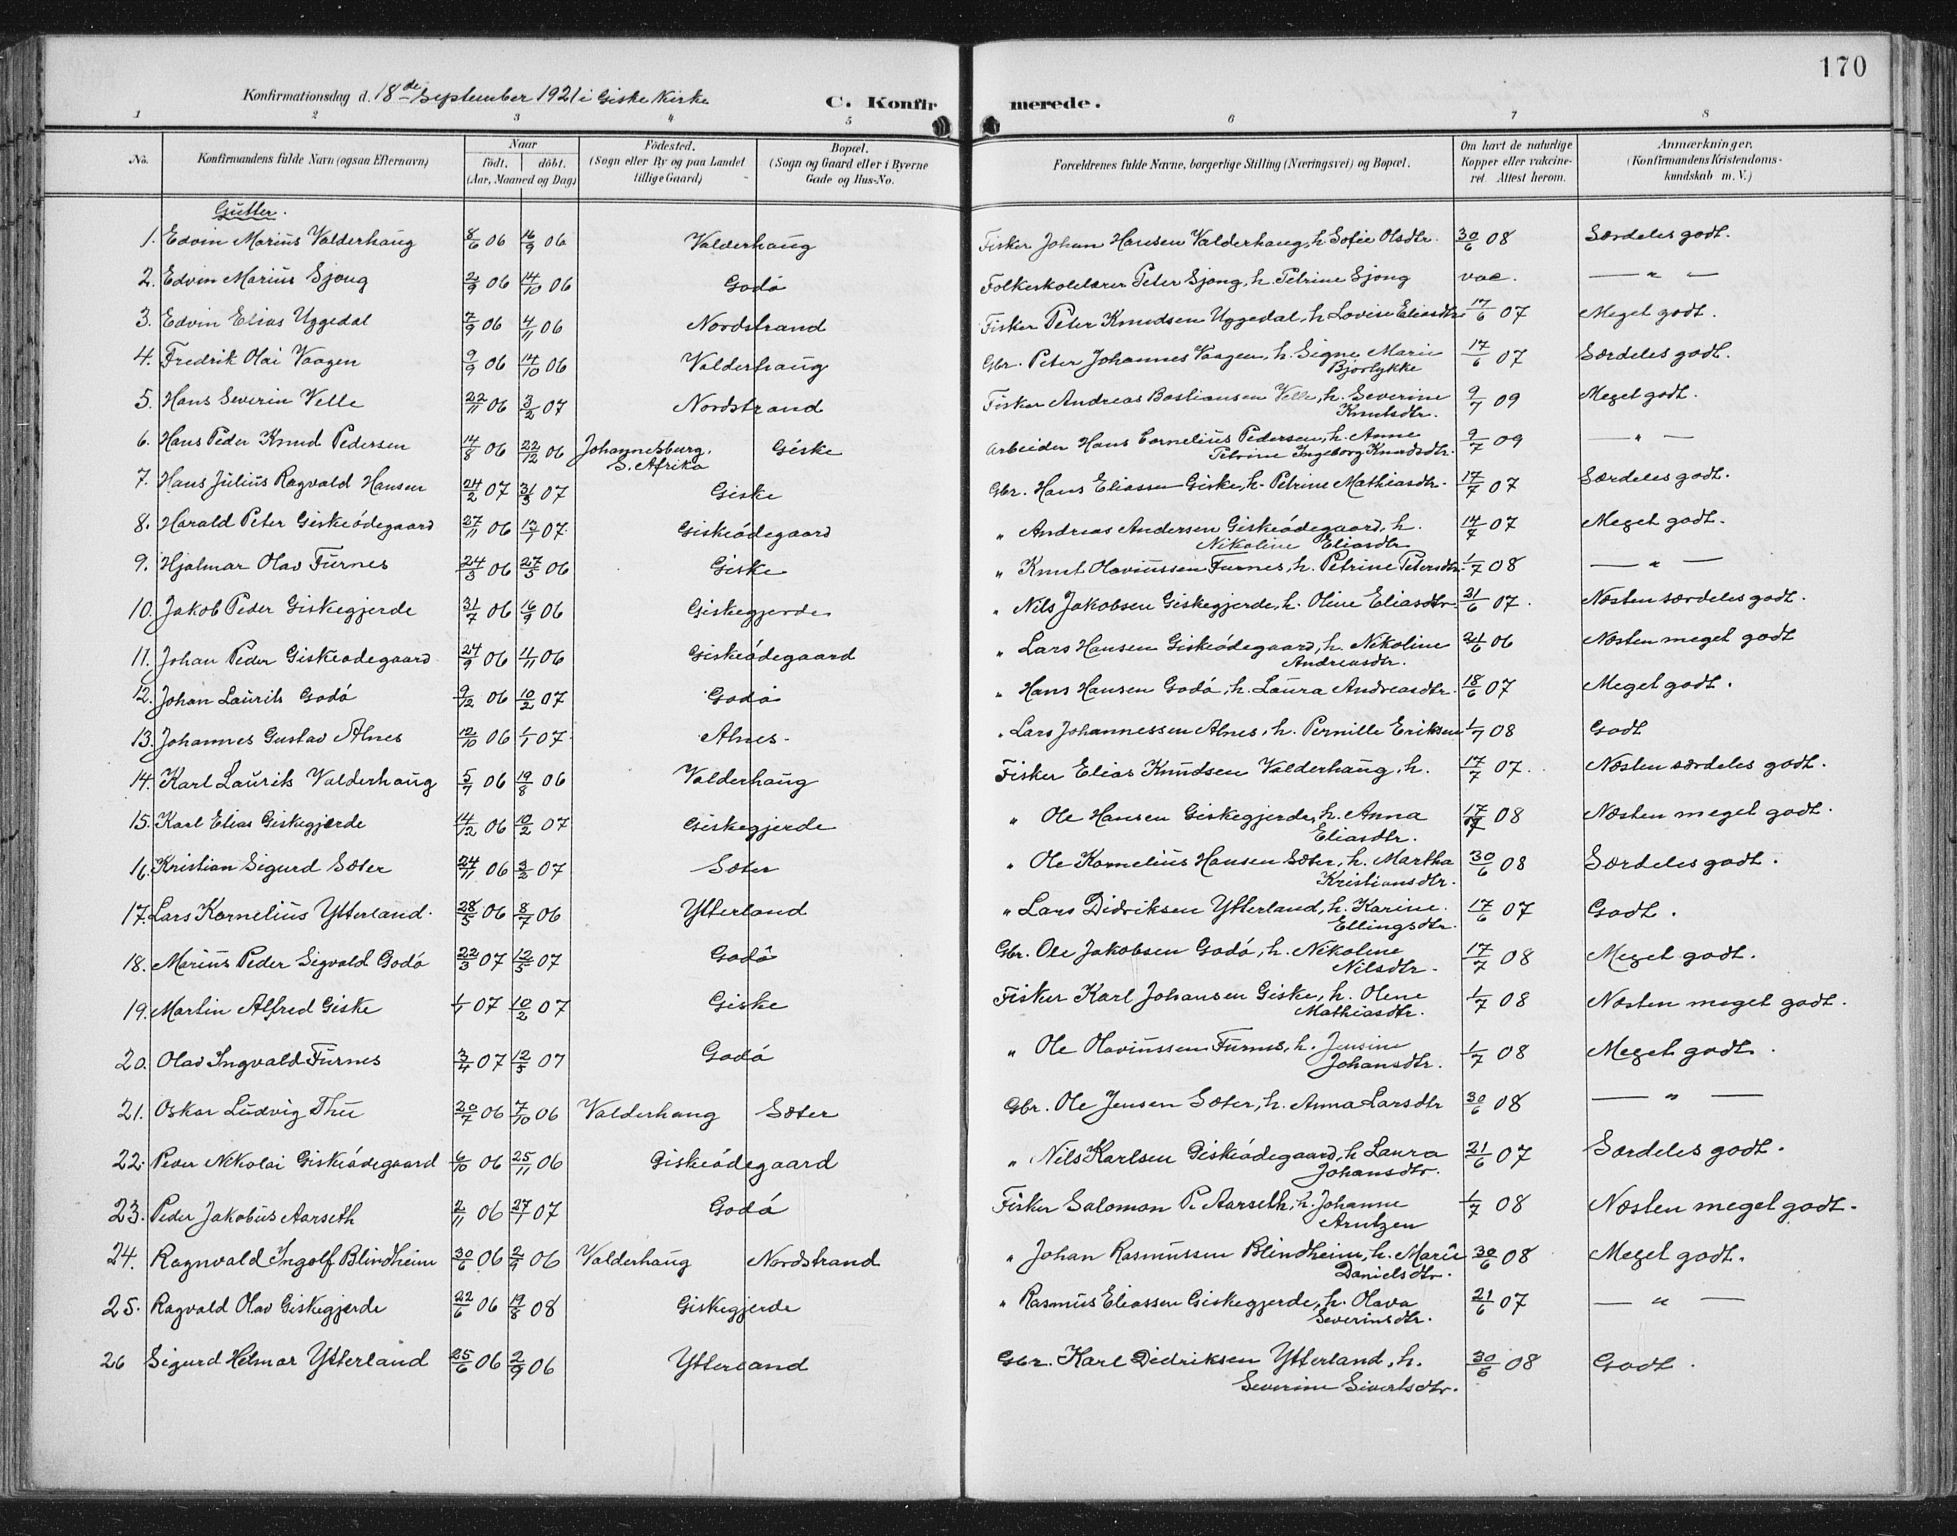 170
Konfirmationsdag d. 18de September 1921 i Giske Kirke C. Konfirmerede.
1 2 3 4 5 6 7 8
No. Konfirmandens fulde Navn (ogsaa Efternavn) Naar födt. döbt. (Aar, Maaned og Dag) Födested. (Sogn eller By og paa Landet tillige Gaard) Bopæl. (Sogn og Gaard eller i Byerne Gade og Hus-No. Forældrenes fulde Navne, borgerlige Stilling (Næringsvei) og Bopæl. Om havt de naturlige Kopper eller vakcineret. Attest herom. Anmærkninger. (Konfirmandens Kristendomskundskab m. V.)
Gutter.
1. Edvin Marius Valderhaug 8/6 06 16/9 06 Valderhaug Fisker Johan Hansen Valderhaug, h. Sofie Olsdtr. 30/6 08 Særdeles godt.
2. Edvin Marius Sjong 2/9 06 14/10 06 Godó Folkeskolelærer Peter Sjong, h. Petrine Sjong vac. — " —
3. Edvin Elias Uggedal 7/9 06 4/11 06 Nordstrand Fisker Peter Knudsen Uggedal, h. Lovise Eliasdtr. 17/6 07 Meget godt.
4. Fredrik Olai Vaagen 9/9 06 14/10 06 Valderhaug Gbr. Peter Johannes Vaagen, h. Signe Marie Bjorlykke 17/6 07 Særdeles godt.
5. Hans Severin Velle 22/11 06 3/2 07 Nordstrand Fisker Andreas Bastiansen Velle, h. Severine Knutsdtr. 9/7 09 Meget godt.
6. Hans Peder Knud Pedersen 14/8 06 22/12 06 Johannesburg, S. Afrika Giske Arbeider Hans Cornelius Pedersen, h. Anne Petrine Ingeborg Knudsdtr. 9/7 09 — " —
7. Hans Julius Ragvald Hansen 24/2 07 31/3 07 Giske Gbr. Hans Eliassen Giske, h. Petrine Mathiasdtr. 17/7 07 Særdeles godt.
8. Harald Peter Giskeódegaard 27/11 06 07 Giskeódegaard " Andreas Andersen Giskeódegaard, h. Nikoline Eliasdtr 14/7 07 Meget godt.
9. Hjalmar Olav Furnes 24/3 06 27/5 06 Giske " Knut Olaviussen Furnes, h. Petrine Petersdtr. 1/7 08 — " —
10. Jakob Peder Giskegjerde 31/7 06 16/9 06 Giskegjerde " Nils Jakobsen Giskegjerde, h. Oline Eliasdtr. 21/6 07. Næsten særdeles godt.
11. Johan Peder Giskeodegaard 24/9 06 4/11 06 Giskeódegaard " Lars Hansen Giskeódegaard, h. Nikoline Andreasdtr. 21/6 06 Næsten meget godt
12. Johan Laurits Godó 9/12 06 10/2 07 Godó " Hans Hansen Godó, h. Laura Andreasdtr. 18/6 07 Meget godt.
13. Johannes Gustav Alnes 12/10 06 1/1 07 Alnes. " Lars Johannessen Alnes, h. Pernille Eriksen 1/7 08 Godt
14. Karl Laurits Valderhaug 5/7 06 19/8 06 Valderhaug Fisker Elias Knudsen Valderhaug, h. 17/7 07. Næsten særdeles godt.
15. Karl Elias Giskegjerde 14/12 06 10/2 07 Giskegjerde " Ole Hansen Giskegjerde, h. Anna Eliasdtr. 17/7 08 Næsten meget godt.
16. Kristian Sigurd Sæter 24/11 06 3/2 07 Sæter " Ole Kornelius Hansen Sæter, h. Martha Kristiansdtr. 30/6 08 Særdeles godt.
17. Lars Kornelius Ytterland. 28/5 06 8/7 06 Ytterland " Lars Didriksen Ytterland, h. Karine Ellingsdtr. 17/6 07 Godt.
18. Marius Peder Sigvald Godó 22/3 07 12/5 07 Godó Gbr. Ole Jakobsen Godó, h. Nikoline Nilsdtr. 17/7 08 Meget godt.
19. Martin Alfred Giske 1/1 07 10/2 07 Giske Fisker Karl Johansen Giske, h. Olene Mathiasdtr. 1/7 08 Næsten meget godt.
20. Olav Ingvald Furnes 3/4 07 12/5 07 Godó " Ole Olaviussen Furnes, h. Jensine Johansdtr. 1/7 08 Meget godt.
21. Oskar Ludvig Thu 20/7 06 7/10 06 Valderhaug Sæter Gbr. Ole Jensen Sæter, h. Anna Larsdtr 30/6 08 — " —
22. Peder Nikolai Giskeódegaard 6/10 06 25/11 06 Giskeódegaard " Nils Karlsen Giskeódegaard, h Laura Johansdtr. 21/6 07 Særdeles godt.
23. Peder Jakobus Aarseth 2/11 06 27/1 07 Godó Fisker Salomon P. Aarseth, h. Johanne Arntzen 1/7 08 Næsten meget godt.
24. Ragnvald Ingolf Blindheim 30/6 06 2/9 06 Valderhaug Nordstrand " Johan Rasmussen Blindheim, h. Marie Danielsdtr. 30/6 08 Meget godt.
25. Ragvald Olav Giskegjerde 22/6 06 19/8 08 Giskegjerde " Rasmus Eliassen Giskegjerde, h. Olava Severinsdtr. 21/6 07 — " —
26 Sigurd Helmar Ytterland 25/6 06 2/9 06 Ytterland Gbr. Karl Didriksen Ytterland, h. Severine Sivertsdtr. 30/6 08 Godt.